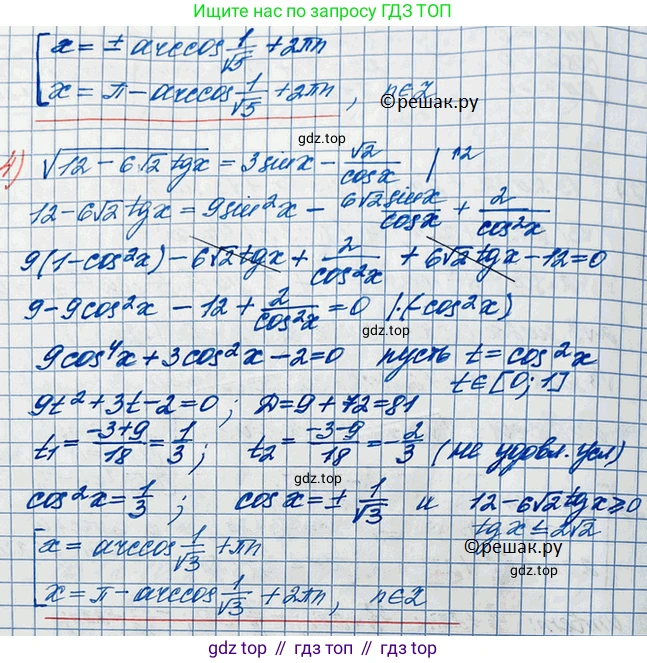 Ищите нас по запросу ГДЗ ТОП
x = ± arccos 1/√5 + 2πn
x = π - arccos 1/√5 + 2πn, n∈Z
©решак.ру
gdz.top
4) √(12 - 6√2 tgx) = 3sinx - √2/cosx |↑2
12 - 6√2 tgx = 9sin²x - 6√2 sinx/cosx + 2/cos²x
9(1-cos²x) - 6√2 tgx + 2/cos²x + 6√2 tgx - 12 = 0
9 - 9cos²x - 12 + 2/cos²x = 0 |·(-cos²x)
gdz.top
9cos⁴x + 3cos²x - 2 = 0 пусть t = cos²x
t∈[0;1]
9t² + 3t - 2 = 0; D = 9 + 72 = 81
t₁ = (-3+9)/18 = 1/3; t₂ = (-3-9)/18 = -2/3 (не удовл. усл)
cos²x = 1/3; cosx = ± 1/√3 и 12 - 6√2 tgx ≥ 0
tgx ≤ 2√2
x = arccos 1/√3 + πn
©решак.ру
gdz.top
x = π - arccos 1/√3 + 2πn, n∈Z
gdz.top / gdz.top / gdz.top